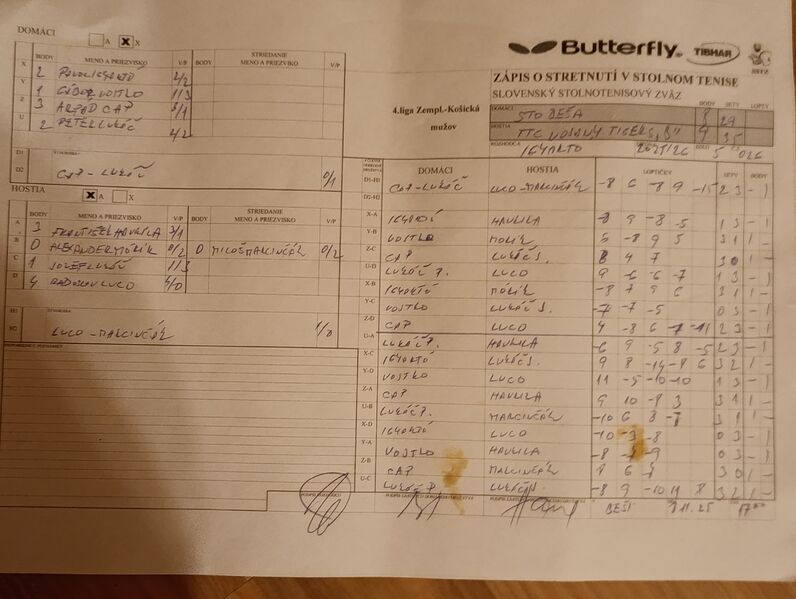 DOMÁCI
A X X
BODY MENO A PRIEZVISKO V/P BODY STRIEDANIE MENO A PRIEZVIKO V/P
X 2 2/2
Y 1 GÁBOR VOJTKO 1/3
Z 3 ARPÁD CAP 3/1
U 2 PETER LUKÁČ 2/2
D1
D2 CAP - LUKÁČ 0/1
HOSTIA
X A X
BODY MENO A PRIEZVISKO V/P BODY STRIEDANIE MENO A PRIEZVISKO V/P
A 3 FRANTIŠEK HAVRILA 3/1
B 0 ALEXANDER MÓRIK 0/2 0 MILOŠ MARCINČÁK 0/2
C 1 JOZEF LUKÁČ 1/3
D 4 RADOSLAV LUCO 4/0
H1
H2 LUCO - MARCINČÁK 1/0
Butterfly TIBHAR SSTZ
ZÁPIS O STRETNUTÍ V STOLNOM TENISE
SLOVENSKÝ STOLNOTENISOVÝ ZVÄZ
4.liga Zempl.-Košická mužov
DOMÁCI BODY SETY LOPTY
STO BEŠA 8
HOSTIA TTC TIGERS "B" 9 35
ROZHODCA 2025/26 5
DOMÁCI HOSTIA LOPTIČKY SETY BODY
D1-H1 CAP-LUKÁČ LUCO-MARCINČÁK -8 6 -8 9 -15 2 3 - 1
D2-H2
X-A HAVRILA -8 9 -8 -5 1 3 - 1
Y-B VOJTKO MÓRIK 5 -8 9 5 3 1 1 -
Z-C CAP LUKÁČ J. 8 4 7 3 0 1 -
U-D LUKÁČ P. LUCO 9 -6 -6 -7 1 3 - 1
X-B MÓRIK -8 7 9 6 3 1 1 -
Y-C VOJTKO LUKÁČ J. -7 -7 -5 0 3 - 1
Z-D CAP LUCO 4 -8 6 -7 -11 2 3 - 1
U-A LUKÁČ P. HAVRILA -6 9 -5 8 -5 2 3 - 1
X-C LUKÁČ J. 9 8 -14 -8 6 3 2 1 -
Y-D VOJTKO LUCO 11 -5 -10 -10 1 3 - 1
Z-A CAP HAVRILA 9 10 -8 3 3 1 1 -
U-B LUKÁČ P. MARCINČÁK -10 6 8 3 1 1 -
X-D LUCO -10 -3 -8 0 3 - 1
Y-A VOJTKO HAVRILA -8 -9 0 3 - 1
Z-B CAP MARCINČÁK 6 3 0 1 -
U-C LUKÁČ P. LUKÁČ J. -8 9 -10 8 3 2 1 -
BEŠA 11.25 17